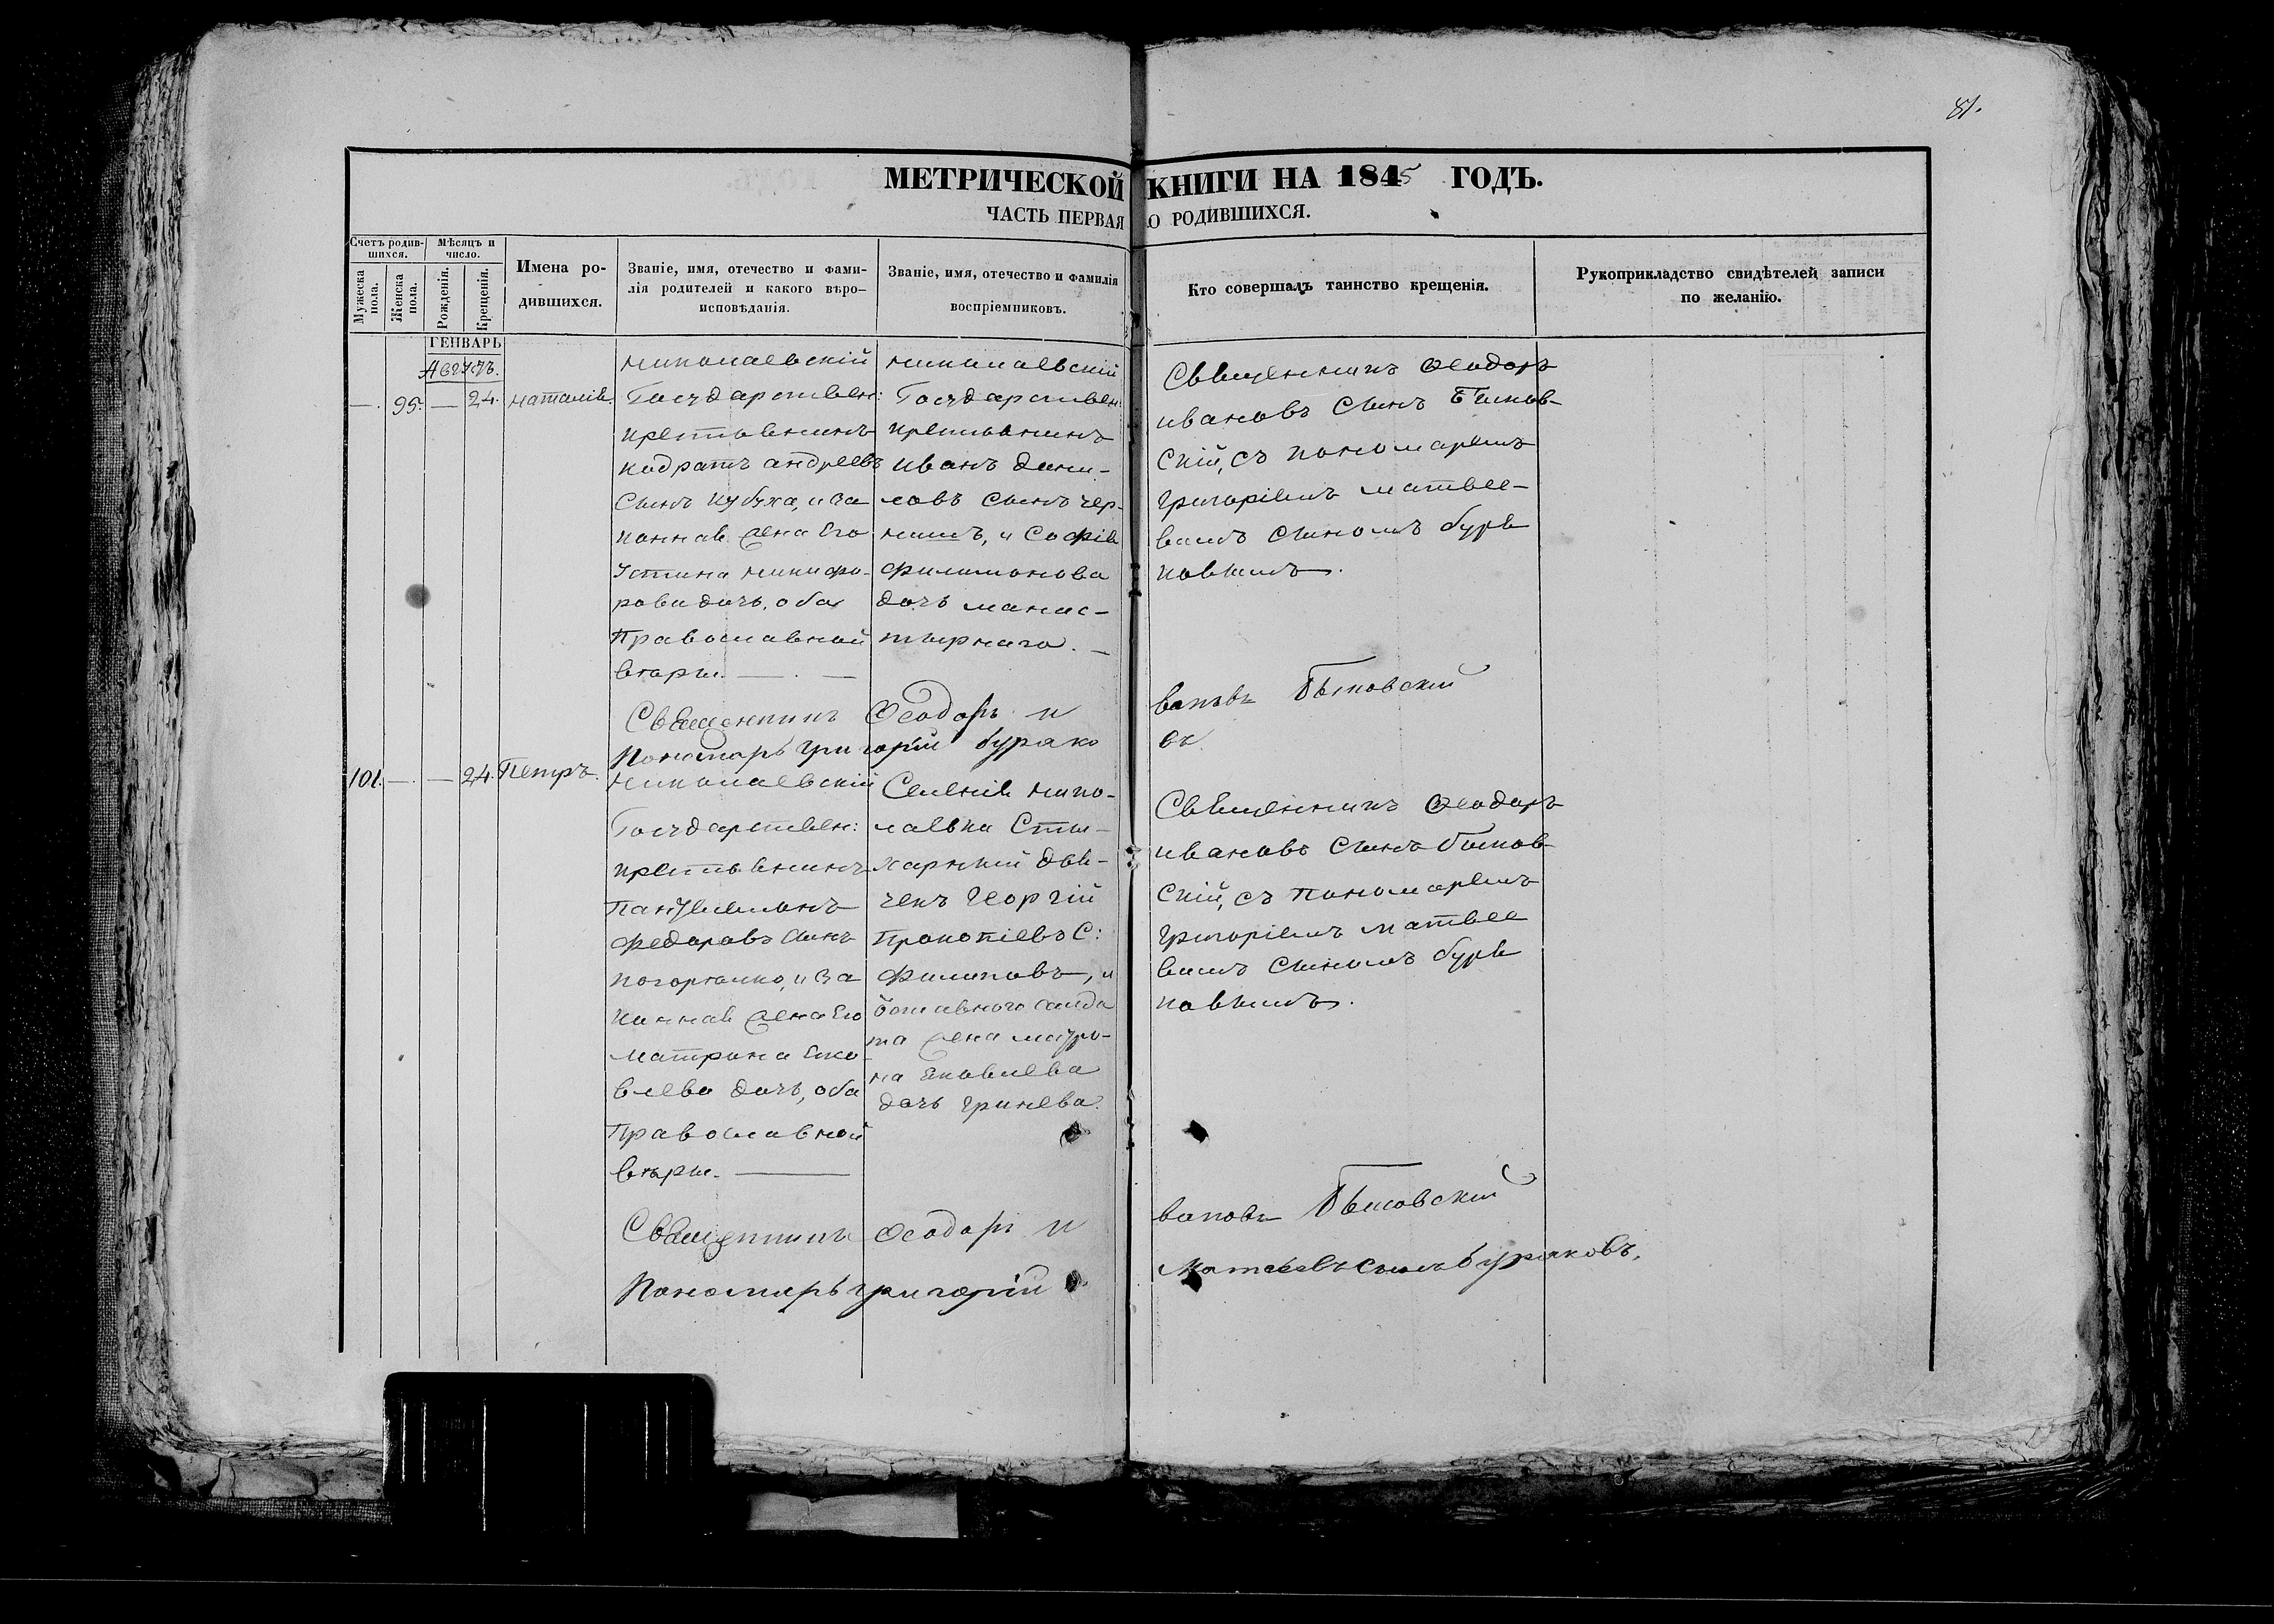 81.
МЕТРИЧЕСКОЙ КНИГИ НА 1845 ГОДЪ.
ЧАСТЬ ПЕРВАЯ О РОДИВШИХСЯ.
Счетъ родив-
шихся.
Мужеска
пола.
Женска
пола.
Мѣсяцъ и
число.
Рожденія.
Крещенія.
Имена ро-
дившихся.
Званіе, имя, отечество и фами-
лія родителей и какого вѣро-
исповѣданія.
Званіе, имя, отечество и фамилія
воспріемниковъ.
Кто совершалъ таинство крещенія.
Рукоприкладство свидѣтелей записи
по желанію.
ГЕНВАРЬ
Августъ.
— 95. — 24. наталія.
николаевскій
Государствен:
крестьянинъ
кодратъ андреевъ
Сынъ кубуха, и за
коннаѧ жена Его
Устина никифо-
рова дочь, оба
Православной
вѣры. — . —
николаевскій
Государствен:
крестьянинъ
иванъ дани-
ловъ Сынъ чер-
нышъ, и Софія
филимонова
дочь манас-
тырнаго. —
Священникъ Ѳеодоръ
ивановъ Сынъ Бѣлков-
Скій, съ пономаремъ
григоріемъ матвее-
вымъ Сыномъ буря
ковымъ.
Священникъ Ѳеодоръ и
вановъ
Пономарь григорій бурако
въ
101. — — 24. Петръ.
николаевскій
Государствен:
крестьянинъ
Пантелемонъ
федоровъ Сынъ
и за
коннаѧ жена Его
матрона Еко
влева дочь, оба
Православной
вѣры. —
Селенія нико-
лаевки Сты-
харный дья-
чекъ георгій
Прокопіевъ С:
филиповъ, и
солда
та жена матро-
на Яковлева
дочь гринева.
Священникъ Ѳеодоръ
ивановъ Сынъ
Скій, съ пономаремъ
григоріемъ матвее
вымъ Сыномъ буря
ковымъ.
Священникъ Ѳеодоръ и
вановъ
Пономарь григорій
Матвеевъ Сынъ буряковъ.